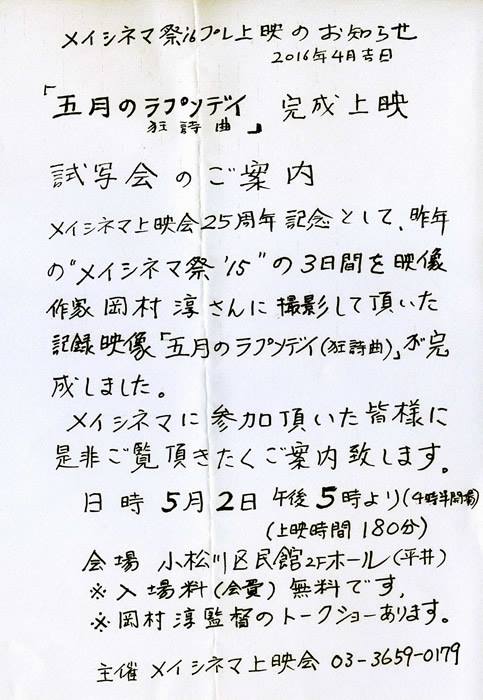 メイシネマ祭'16プレ上映のお知らせ
2016年4月吉日
「五月のラプソデイ 完成上映
狂詩曲」
試写会のご案内
メイシネマ上映会25周年記念として、昨年
の"メイシネマ祭'15"の3日間を映像
作家岡村淳さんに撮影して頂いた
記録映像「五月のラプソデイ(狂詩曲)」が完
成しました。
メイシネマに参加頂いた皆様に
是非ご覧頂きたくご案内致します。
日時 5月2日 午後5時より(4時半開場)
(上映時間180分)
会場 小松川区民館2Fホール(平井)
※入場料(会費)無料です,
※岡村淳監督のトークショーあります。
主催 メイシネマ上映会 03-3659-0179